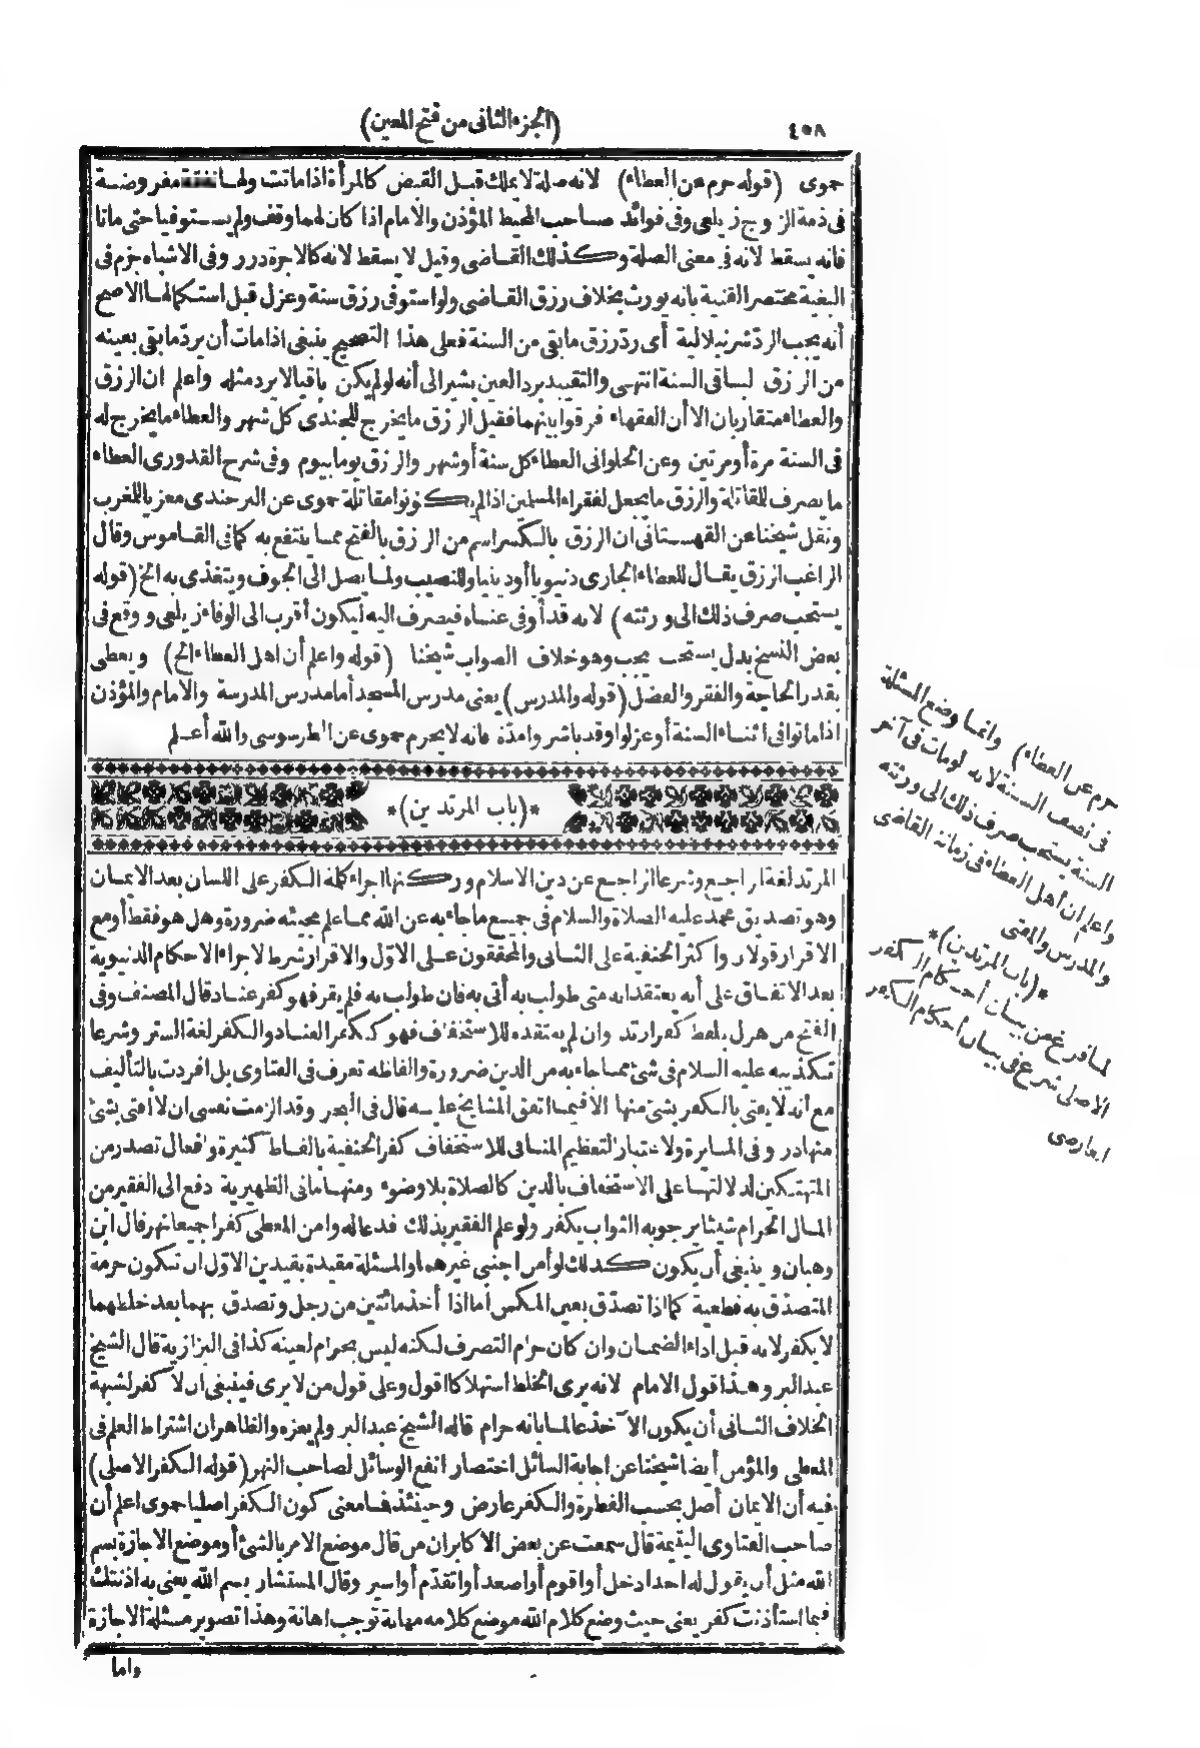 ٤٥٨
(الجزء الثانى من فتح المعين)
حموى (قوله حرم عن العطاء) لانه صلة لا يملك قبل القبض كالمرأة اذا ماتت ولها نفقة مفروضة
فى ذمة الزوج زيلعى وفى فوائد صاحب المحيط المؤذن والامام اذا كان لهما وقف ولم يستوفيا حتى ماتا
فانه يسقط لانه فى معنى الصلة وكذلك القاضى وقيل لا يسقط لانه كالاجرة درر وفى الاشباه جزم فى
البغية مختصر القنية بانه يورث بخلاف رزق القاضى ولو استوفى رزق سنة وعزل قبل استكمالها الاصح
أنه يجب الرد شرنبلالية أى رد رزق ما بقى من السنة فعلى هذا التصحيح ينبغى اذا مات أن يردّ ما بقى بعينه
من الرزق لباقى السنة انتهى والتقييد برد العين يشير الى أنه لو لم يكن باقيا لا يرد مثله واعلم ان الرزق
والعطاء متقاربان الا أن الفقهاء فرقوا بينهما فقيل الرزق ما يخرج للجندى كل شهر والعطاء ما يخرج له
فى السنة مرة أو مرتين وعن الحلوانى العطاء كل سنة أو شهر والرزق يوما بيوم وفى شرح القدورى العطاء
ما يصرف للمقاتلة والرزق ما يجعل لفقراء المسلمين اذا لم يكونوا مقاتلة حموى عن البرجندى معزيا للمغرب
ونقل شيخنا عن القهستانى ان الرزق بالكسر اسم من الرزق بالفتح مما ينتفع به كما فى القاموس وقال
الراغب الرزق يقال للعطاء الجارى دنيويا أو دينيا وللنصيب ولما يصل الى الجوف ويتغذى به الخ (قوله
يستحب صرف ذلك الى ورثته) لانه قد أوفى عناه فيصرف اليه ليكون أقرب الى الوفاء زيلعى ووقع فى
بعض النسخ بدل يستحب يجب وهو خلاف الصواب شيخنا (قوله واعلم أن اهل العطاء الخ) ويعطى
بقدر الحاجة والفقر والفضل (قوله والمدرس) يعنى مدرس المسجد أما مدرس المدرسة والامام والمؤذن
اذا ماتوا فى اثناء السنة أو عزلوا وقد باشروا مدّة فانه لا يحرم حموى عن الطرسوسى والله أعلم
*(باب المرتدين)*
المرتد لغة الراجع وشرعا الراجع عن دين الاسلام وركنها اجراء كلمة الكفر على اللسان بعد الايمان
وهو تصديق محمد عليه الصلاة والسلام فى جميع ما جاء به عن الله مما علم مجيئه ضرورة وهل هو فقط أو مع
الاقرار قولان واكثر الحنفية على الثانى والمحققون على الاوّل والاقرار شرط لاجراء الاحكام الدنيوية
بعد الاتفاق على أنه يعتقد انه متى طولب به أتى به فان طولب به فلم يقر فهو كفر عناد قال المصنف وفى
الفتح من هزل بلفظ كفر ارتد وان لم يعتقده للاستخفاف فهو ككفر العناد والكفر لغة الستر وشرعا
تكذيبه عليه السلام فى شئ مما جاء به من الدين ضرورة والفاظه تعرف فى الفتاوى بل افردت بالتأليف
مع أنه لا يفتى بالكفر بشئ منها الا فيما اتفق المشايخ عليه قال فى البحر وقد الزمت نفسى ان لا افتى بشئ
منها در وفى المسايرة ولاعتبار التعظيم المنافى للاستخفاف كفر الحنفية بالفاظ كثيرة وافعال تصدر من
المتهتكين لدلالتها على الاستخفاف بالدين كالصلاة بلا وضوء ومنها ما فى الظهيرية دفع الى الفقير من
المال الحرام شيئا يرجو به الثواب يكفر ولو علم الفقير بذلك فدعا له وامن المعطى كفرا جميعا نهر قال ابن
وهبان وينبغى أن يكون كذلك لو أمن اجنبى غيرهما والمسئلة مقيدة بقيدين الاوّل ان تكون حرمة
المتصدّق به قطعية كما اذا تصدّق بعين المكس أما اذا أخذ مائتين من رجل وتصدق بهما بعد خلطهما
لا يكفر لانه قبل اداء الضمان وان كان حرام التصرف لكنه ليس بحرام لعينه كذا فى البزازية قال الشيخ
عبد البر وهذا قول الامام لانه يرى الخلط استهلاكا اقول وعلى قول من لا يرى فينبغى ان لا كفر لشبهة
الخلاف الثانى أن يكون الآخذ عالما بانه حرام قاله الشيخ عبد البر ولم يعزه والظاهر ان اشتراط العلم فى
المعطى والمؤمن أيضا شيخنا عن اجابة السائل اختصار انفع الوسائل لصاحب النهر (قوله الكفر الاصلى)
فيه أن الايمان أصل بحسب الفطرة والكفر عارض وحينئذ فما معنى كون الكفر اصليا حموى اعلم أن
صاحب الفتاوى اليتيمة قال سمعت عن بعض الاكابر ان من قال موضع الامر بالشئ أو موضع الاجازة بسم
الله مثل أن يقول له احد ادخل أو اقوم أو اصعد أو اتقدّم أو اسير وقال المستشار بسم الله يعنى به اذنتك
فيما استأذنت كفر يعنى حيث وضع كلام الله موضع كلامه مهانة توجب اهانة وهذا تصوير مسئلة الاجازة
واما
حرم عن العطاء) وانما وضع المسئلة
فى نصف السنة لانه لو مات فى آخر
السنة يستحب صرف ذلك الى ورثته
واعلم ان أهل العطاء فى زماننا القاضى
والمدرس والمفتى
*(باب المرتدين)*
لما فرغ من بيان أحكام الكفر
الاصلى شرع فى بيان أحكام الكفر
العارضى